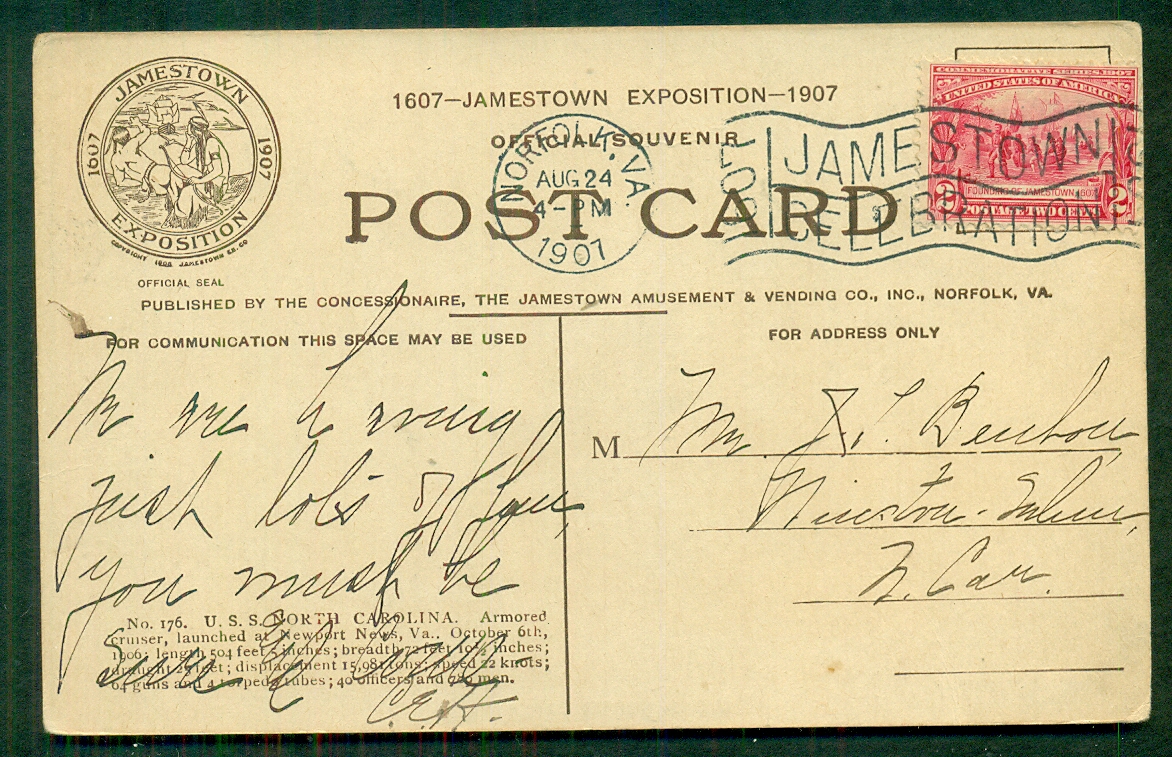 JAMESTOWN
1607 1907
EXPOSITION
COPYRIGHT 1905 JAMESTOWN EX. CO
OFFICIAL SEAL
1607—JAMESTOWN EXPOSITION—1907
OFFICIAL SOUVENIR
POST CARD
NORFOLK, VA.
AUG 24
4-PM
1907
JAMESTOWN
CELEBRATION
COMMEMORATIVE SERIES 1907
UNITED STATES OF AMERICA
FOUNDING OF JAMESTOWN 1607
2 POSTAGE TWO CENTS 2
PUBLISHED BY THE CONCESSIONAIRE, THE JAMESTOWN AMUSEMENT & VENDING CO., INC., NORFOLK, VA.
FOR COMMUNICATION THIS SPACE MAY BE USED
We are having
just lots of fun,
you must be
Sure & come
No. 176. U. S. S. NORTH CAROLINA. Armored
cruiser, launched at Newport News, Va., October 6th,
1906; length 504 feet 5 inches; breadth 72 feet 10½ inches;
draught 25 feet; displacement 15,981 tons; speed 22 knots;
64 guns and 4 torpedo tubes; 40 officers and men.
FOR ADDRESS ONLY
M
Benbow
Winston-Salem,
N. Car.